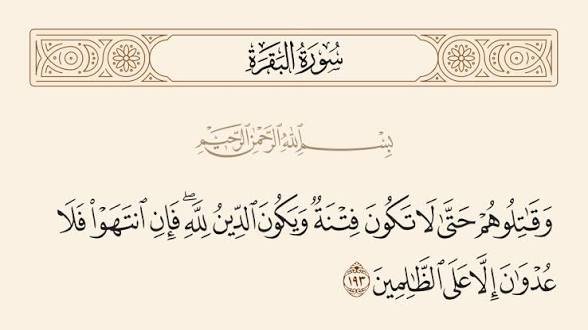 سُورَةُ البَقَرَةِ
بِسْمِ اللَّهِ الرَّحْمَٰنِ الرَّحِيمِ
وَقَٰتِلُوهُمْ حَتَّىٰ لَا تَكُونَ فِتْنَةٌ وَيَكُونَ ٱلدِّينُ لِلَّهِ ۖ فَإِنِ ٱنتَهَوْا۟ فَلَا
عُدْوَٰنَ إِلَّا عَلَى ٱلظَّٰلِمِينَ ١٩٣